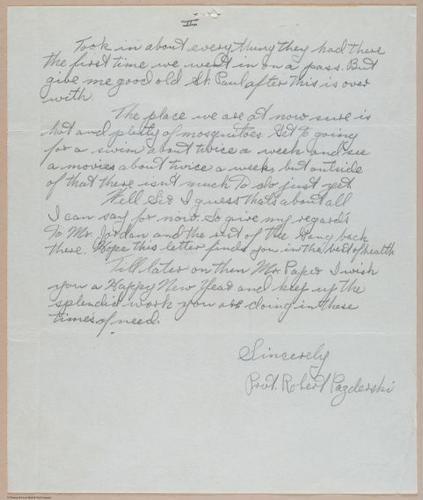 II
Took in about everything they had there
the first time we went in on a pass. But
give me good old St. Paul after this is over
with.
The place we are at now sure is
hot and plenty of mosquitoes. Get to going
for a swim about twice a week and see
a movies about twice a week, but outside
of that there isn't much to do just yet.
Well Sir I guess that's about all
I can say for now. So give my regards
to Mr. Jordan and the rest of the Gang back
there. Hope this letter finds you in the best of health
Till later on then Mr. Paper I wish
you a Happy New Year and keep up the
splendid work you are doing in these
times of need.
Sincerely
Pvt. Robert Pazderski